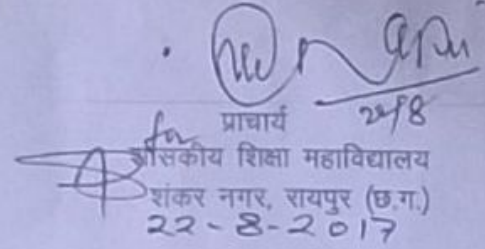 for प्राचार्य
शासकीय शिक्षा महाविद्यालय
शंकर नगर, रायपुर (छ.ग.)
22-8-2017